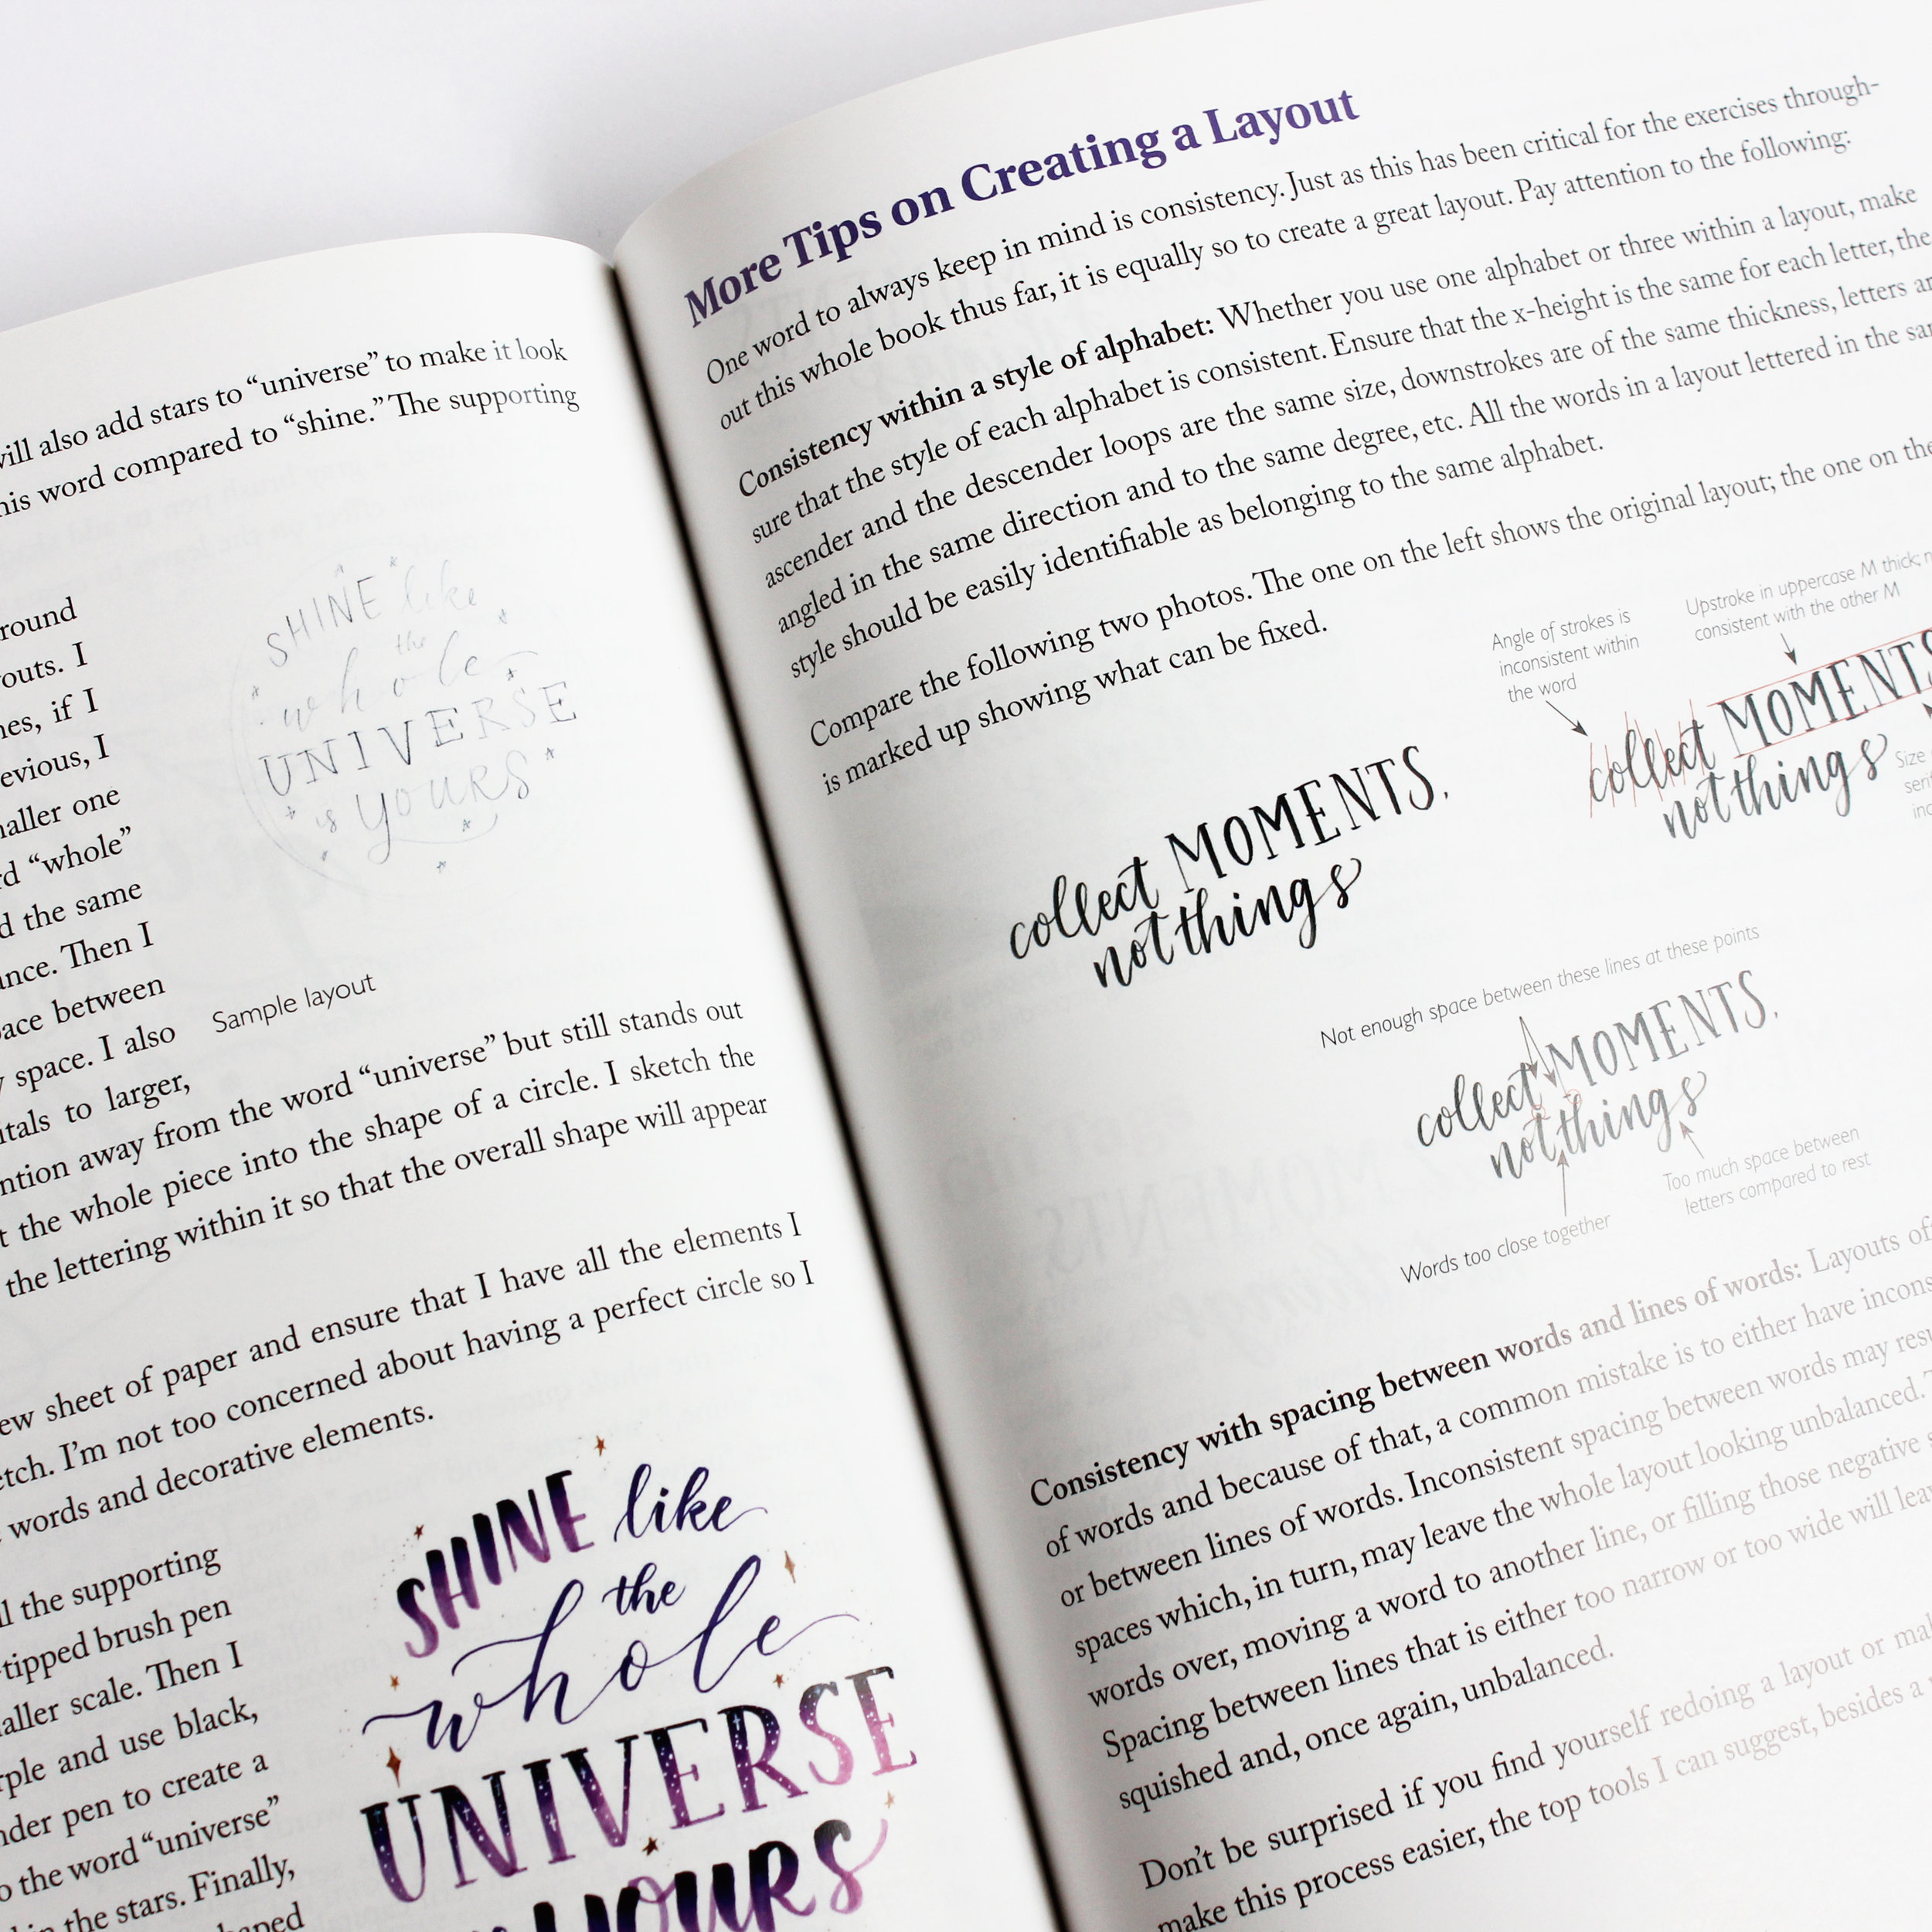 will also add stars to “universe” to make it look
this word compared to “shine.” The supporting
round
outs. I
if I
I
smaller one
“whole”
the same
Then I
space between
space. I also
to larger,
away from the word “universe” but still stands out
the whole piece into the shape of a circle. I sketch the
the lettering within it so that the overall shape will appear
SHINE like
the
whole
UNIVERSE
is YOURS
Sample layout
sheet of paper and ensure that I have all the elements I
I’m not too concerned about having a perfect circle so I
words and decorative elements.
the supporting
-tipped brush pen
smaller scale. Then I
and use black,
pen to create a
the word “universe”
the stars. Finally,
SHINE like
the
whole
UNIVERSE
YOURS
More Tips on Creating a Layout
One word to always keep in mind is consistency. Just as this has been critical for the exercises through-
out this whole book thus far, it is equally so to create a great layout. Pay attention to the following:
Consistency within a style of alphabet: Whether you use one alphabet or three within a layout, make
sure that the style of each alphabet is consistent. Ensure that the x-height is the same for each letter, the
ascender and the descender loops are the same size, downstrokes are of the same thickness, letters
angled in the same direction and to the same degree, etc. All the words in a layout lettered in the
style should be easily identifiable as belonging to the same alphabet.
Compare the following two photos. The one on the left shows the original layout; the one on the
is marked up showing what can be fixed.
collect MOMENTS,
not things
Angle of strokes is
inconsistent within
the word
Upstroke in uppercase M thick;
consistent with the other M
collect MOMENTS
not things
Size
Not enough space between these lines at these points
collect MOMENTS,
not things
Too much space between
letters compared to rest
Words too close together
Consistency with spacing between words and lines of words: Layouts of
of words and because of that, a common mistake is to either have
or between lines of words. Inconsistent spacing between words may
spaces which, in turn, may leave the whole layout looking unbalanced.
words over, moving a word to another line, or filling those negative
Spacing between lines that is either too narrow or too wide will
squished and, once again, unbalanced.
Don’t be surprised if you find yourself redoing a layout or
make this process easier, the top tools I can suggest, besides a